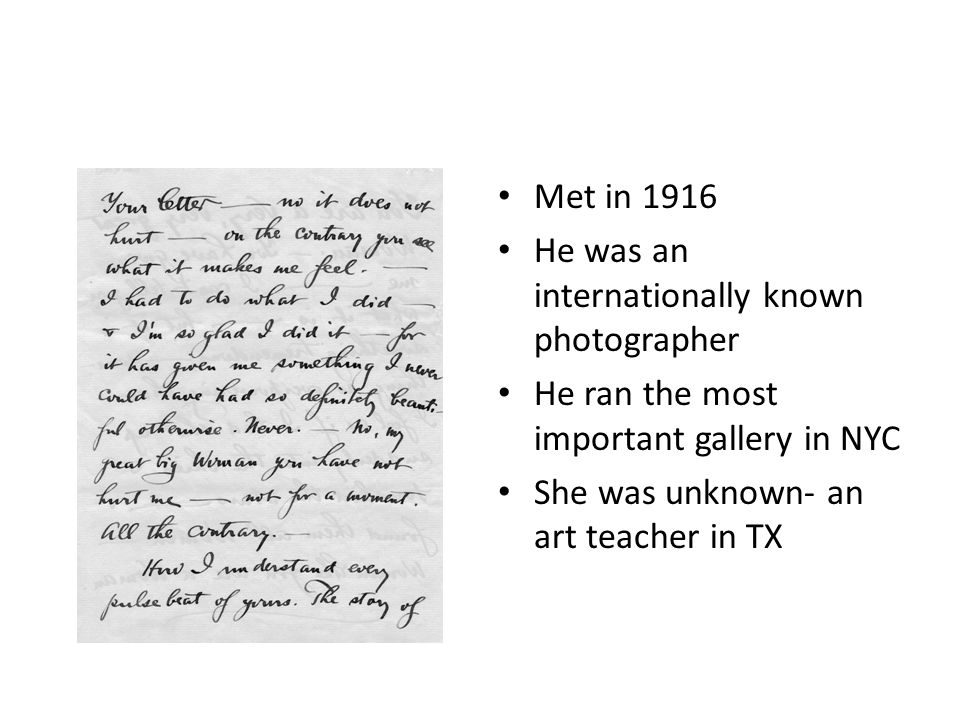 Your letter — no it does not
hurt — on the contrary you see
what it makes me feel. —
I had to do what I did —
& I'm so glad I did it — for
it has given me something I never
could have had so definitely beauti-
ful otherwise. Never. — No, my
great big Woman you have not
hurt me — not for a moment.
All the contrary. —
How I understand every
pulse beat of yours. The story of
• Met in 1916
• He was an
internationally known
photographer
• He ran the most
important gallery in NYC
• She was unknown- an
art teacher in TX